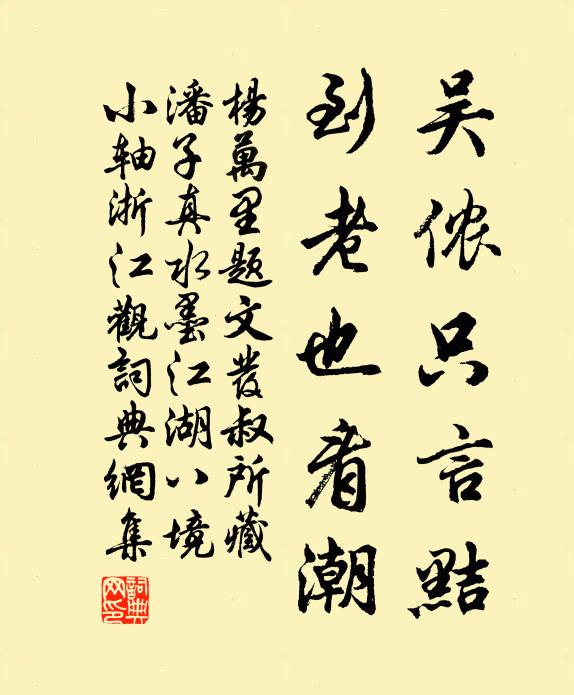 吴侬只言黠
到老也看潮
楊萬里題文發叔所藏
潘子真水墨江湖八境
小軸浙江觀詞典網集
詞典网印